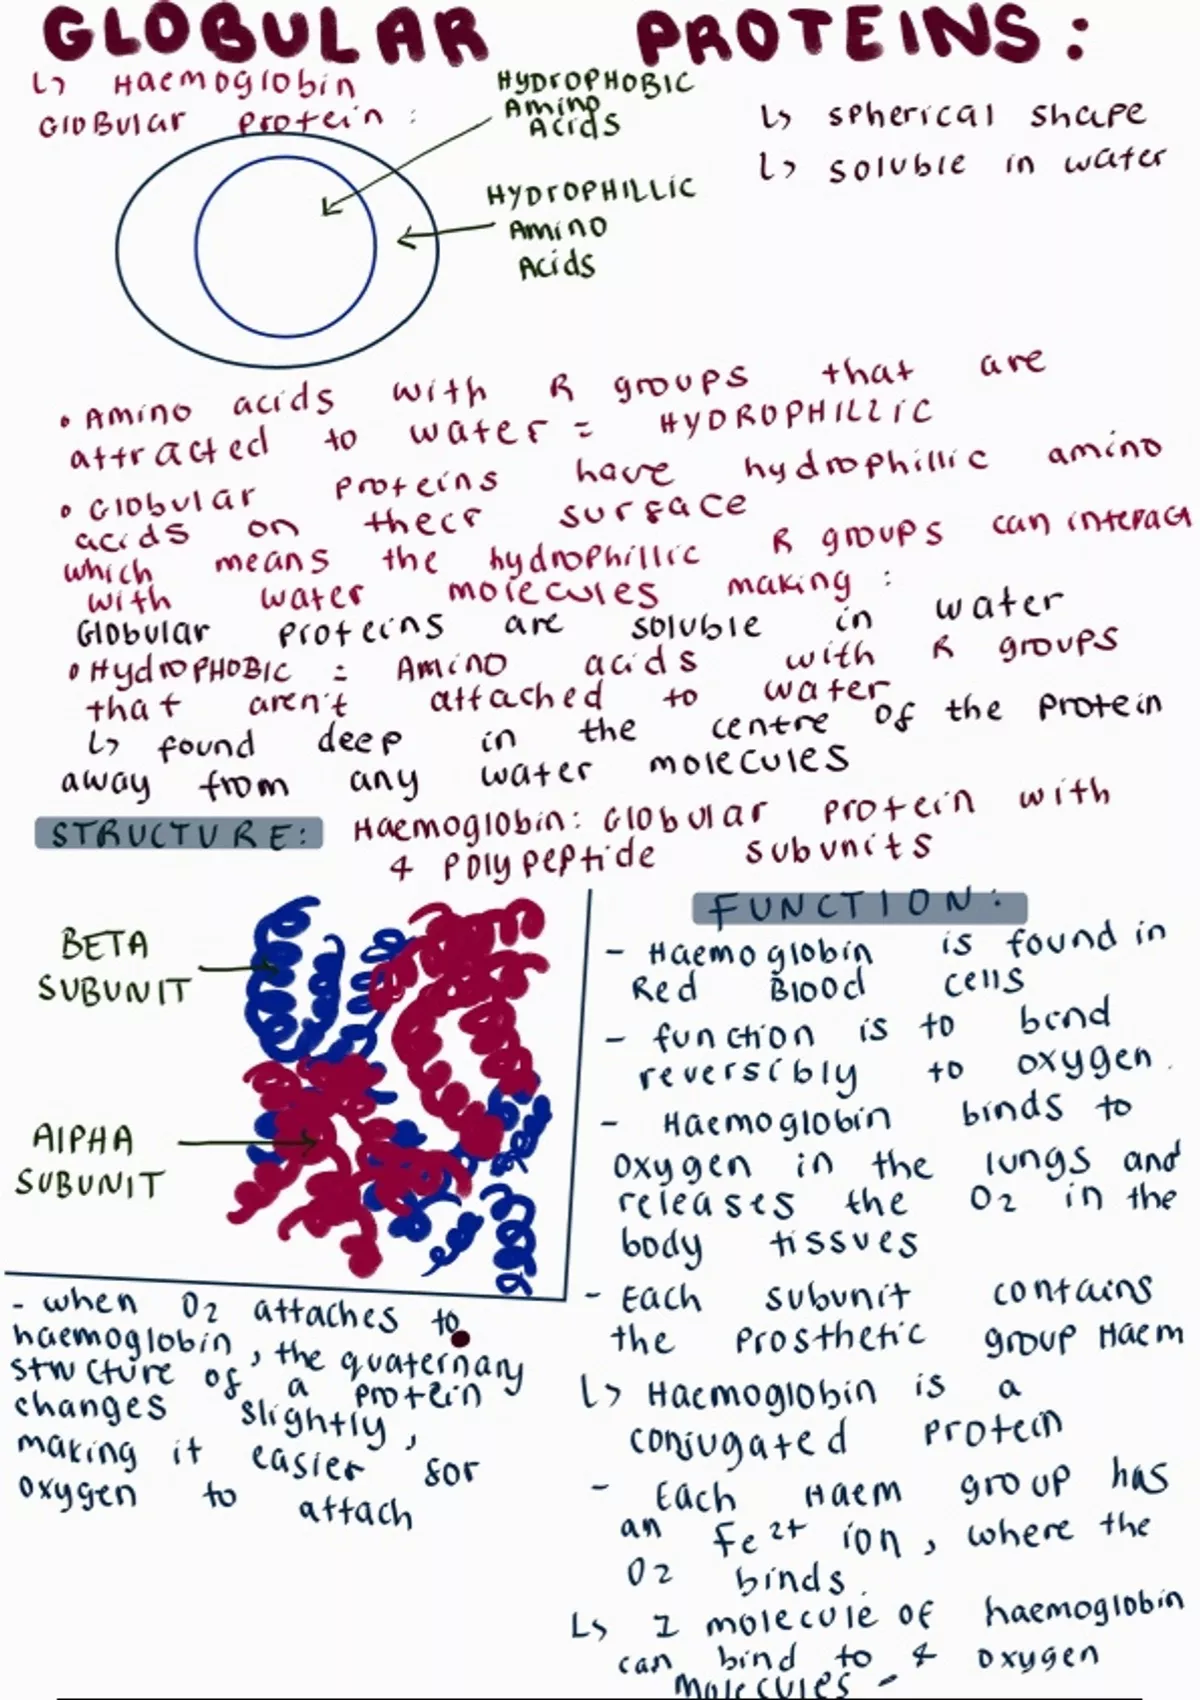 GLOBULAR PROTEINS:
↳ Haemoglobin
Globular protein:
HYDROPHOBIC
Amino
Acids
HYDROPHILLIC
Amino
Acids
↳ spherical shape
↳ soluble in water
• Amino acids with R groups that are
attracted to water = HYDROPHILLIC
• Globular proteins have hydrophillic amino
acids on their surface
which means the hydrophillic R groups can interact
with water molecules making:
Globular proteins are soluble in water
• HydroPHOBIC = Amino acids with R groups
that aren't attached to water
↳ found deep in the centre of the protein
away from any water molecules
STRUCTURE:
Haemoglobin: Globular protein with
4 polypeptide subunits
BETA
SUBUNIT
AlPHA
SUBUNIT
- when O2 attaches to
haemoglobin, the quaternary
structure of a protein
changes slightly,
making it easier for
oxygen to attach
FUNCTION:
- Haemoglobin is found in
Red Blood cells
- function is to bind
reversibly to oxygen.
- Haemoglobin binds to
oxygen in the lungs and
releases the O2 in the
body tissues
- Each subunit contains
the prosthetic group Haem
↳ Haemoglobin is a
conjugated protein
- Each Haem group has
an Fe2+ ion, where the
O2 binds.
↳ 1 molecule of haemoglobin
can bind to 4 oxygen
molecules -